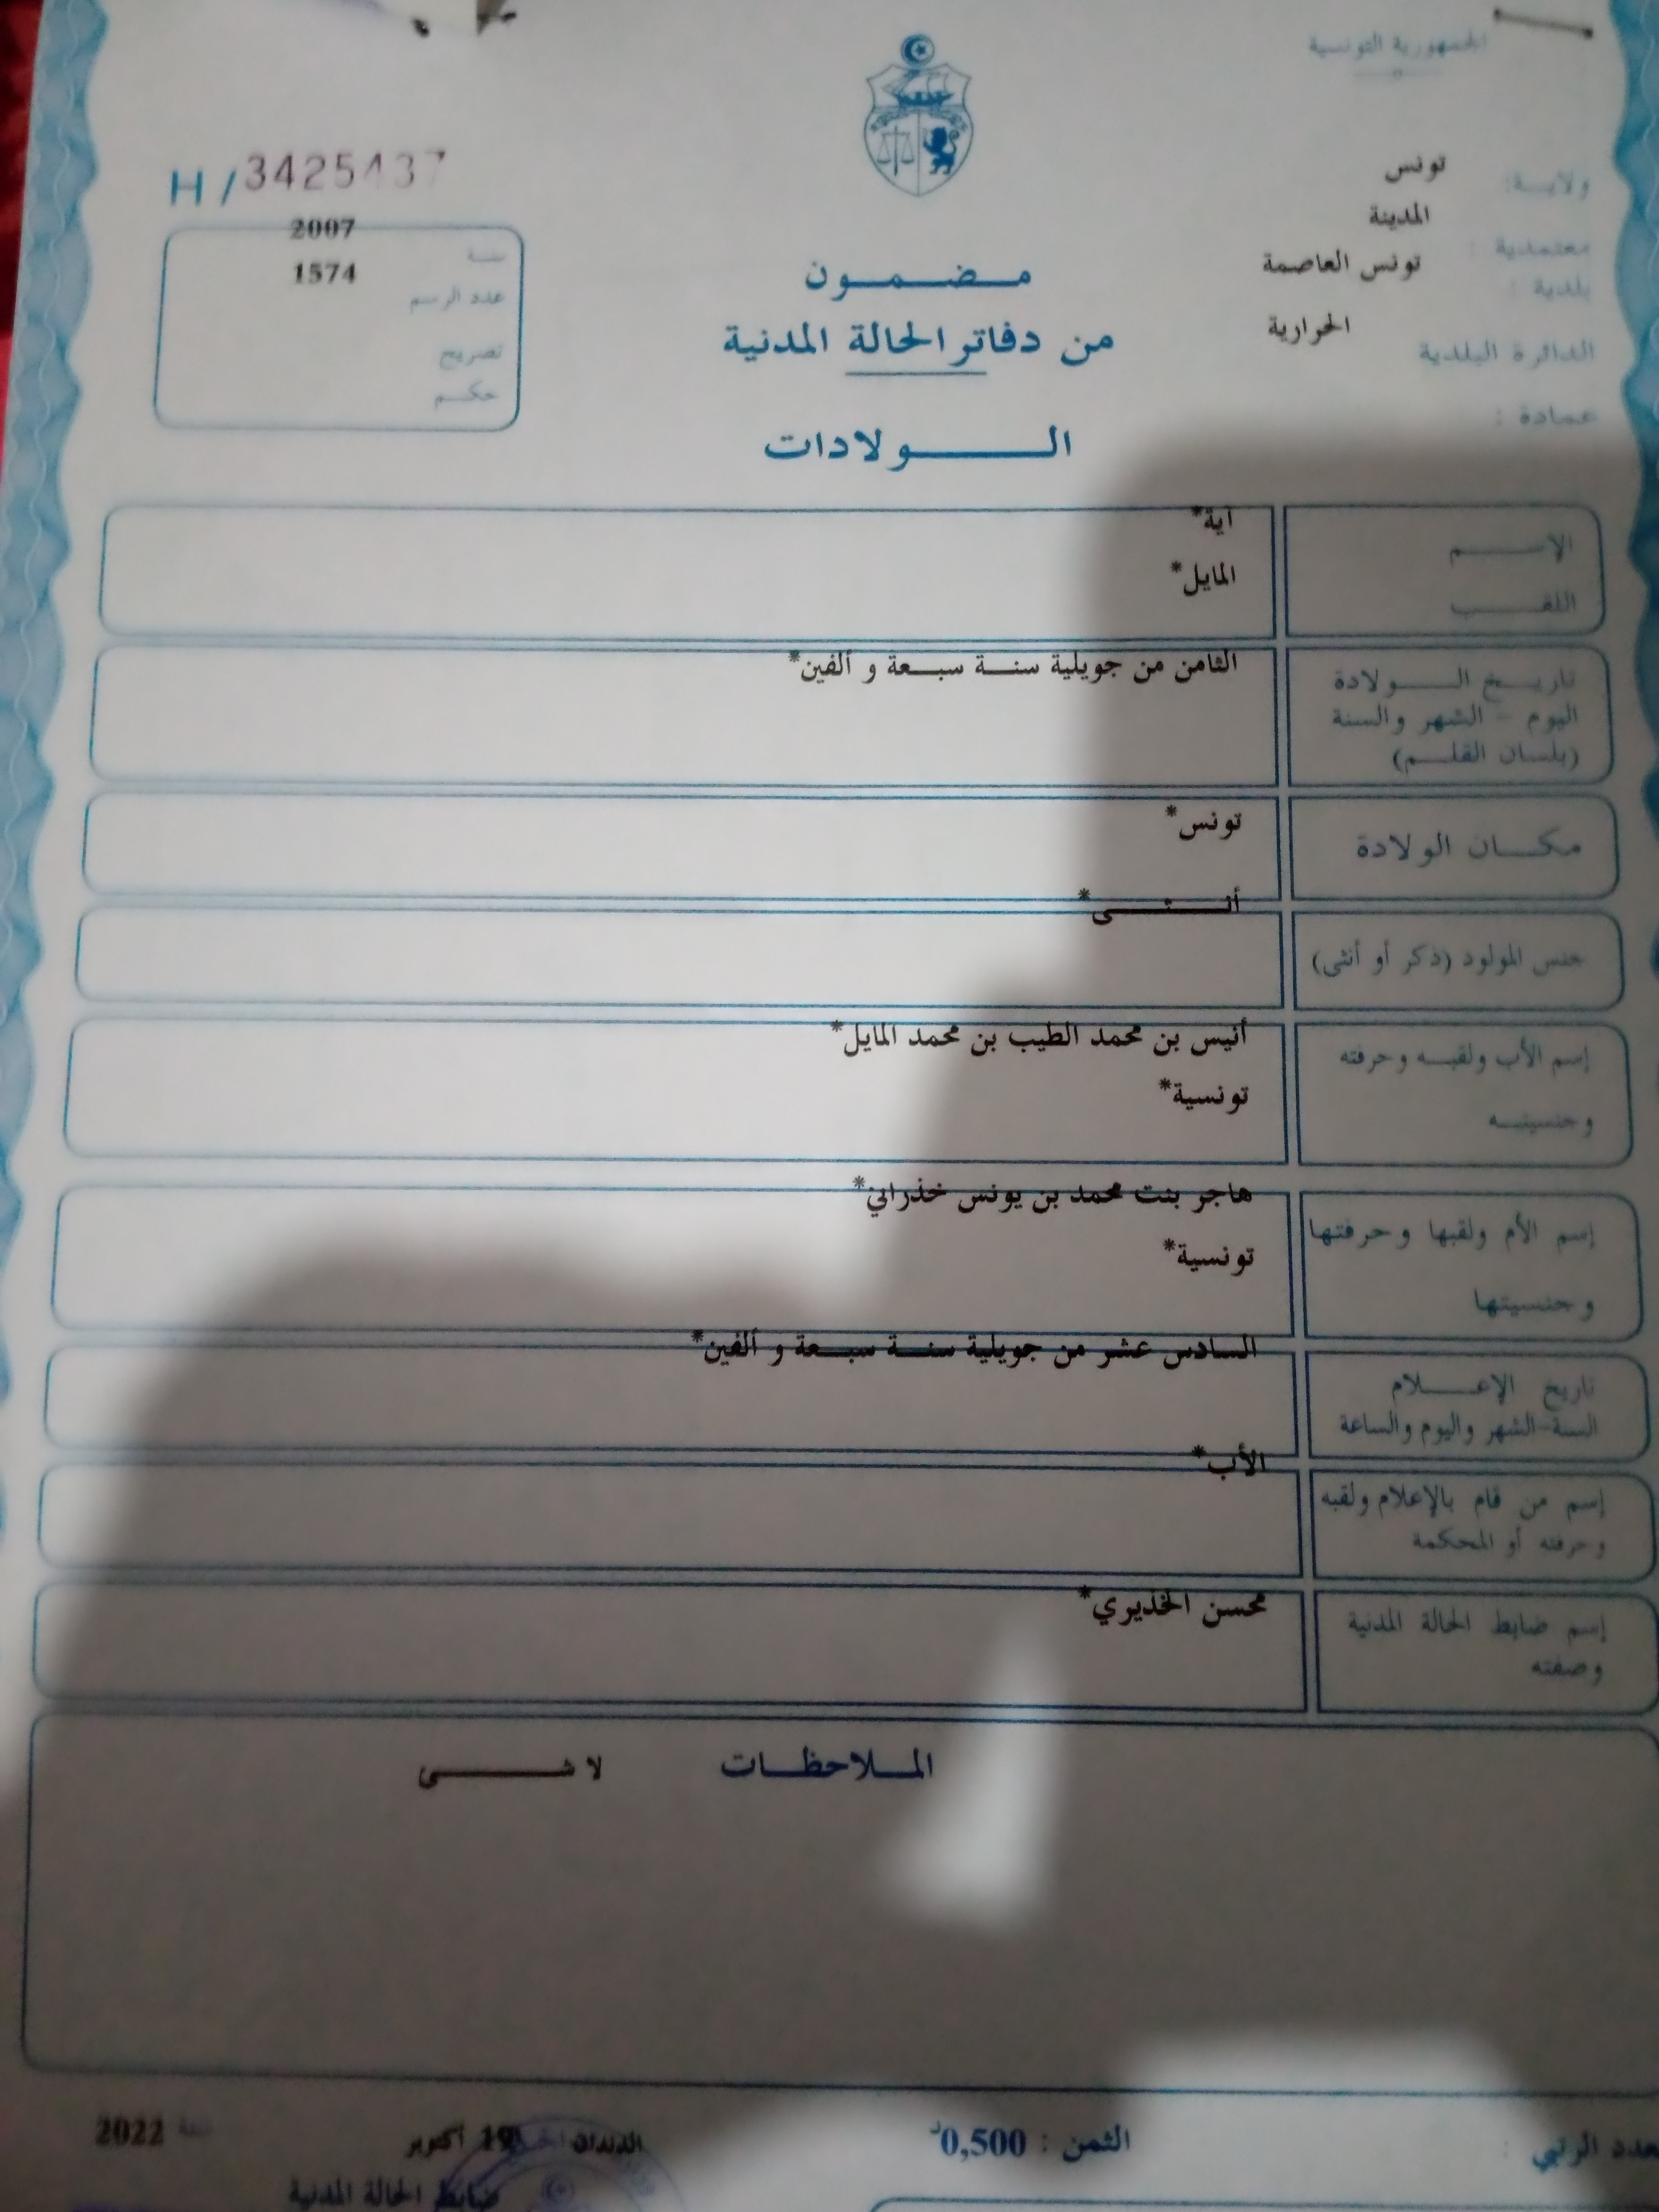 الجمهورية التونسية
H / 3425437
ولاية: تونس
معتمدية : المدينة
بلدية : تونس العاصمة
الدائرة البلدية الحرارية
عمادة :
سنة 2007
عدد الرسم 1574
تصريح
حكم
مضمون
من دفاتر الحالة المدنية
الولادات
الإسم آية*
اللقب المايل*
تاريخ الولادة الثامن من جويلية سنة سبعة و ألفين*
اليوم - الشهر والسنة
(بلسان القلم)
مكان الولادة تونس*
جنس المولود (ذكر أو أنثى) أنثى*
إسم الأب ولقبه وحرفته أنيس بن محمد الطيب بن محمد المايل*
وجنسيته تونسية*
إسم الأم ولقبها وحرفتها هاجر بنت محمد بن يونس خذراني*
وجنسيتها تونسية*
تاريخ الإعلام السادس عشر من جويلية سنة سبعة و ألفين*
السنة-الشهر واليوم والساعة
إسم من قام بالإعلام ولقبه الأب*
وحرفته أو المحكمة
إسم ضابط الحالة المدنية محسن الخذيري*
وصفته
الملاحظات لا شى
عدد الرتبي :
الثمن : 0,500د
الدندان 19 أكتوبر سنة 2022
ضابط الحالة المدنية